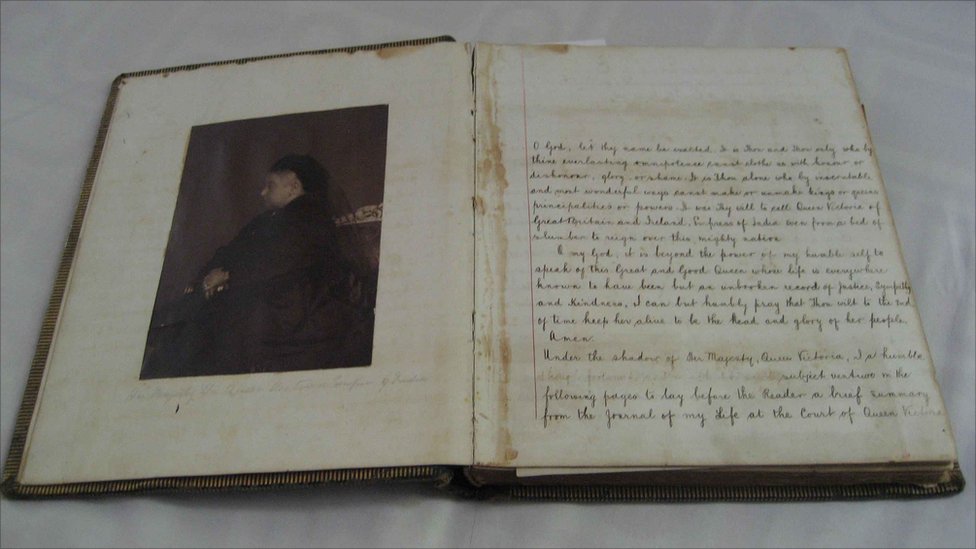 Her Majesty the Queen Victoria Empress of India
O God, let thy name be exalted. It is Thou and Thou only who by
thine everlasting omnipotence canst clothe us with honour or
dishonour, glory, or shame. It is Thou alone who by inscrutable
and most wonderful ways canst make or unmake kings or queens
principalities or powers. It was Thy will to call Queen Victoria of
Great Britain and Ireland, Empress of India even from a bed of
slumber to reign over this mighty nation
O my God, it is beyond the power of my humble self to
speak of this Great and Good Queen whose life is everywhere
known to have been but an unbroken record of Justice, Sympathy
and Kindness, I can but humbly pray that Thou wilt to the End
of time keep her alive to be the Head and glory of her people.
Amen.
Under the shadow of Her Majesty, Queen Victoria, I a humble
subject venture in the
following pages to lay before the Reader a brief summary
from the Journal of my Life at the Court of Queen Victoria